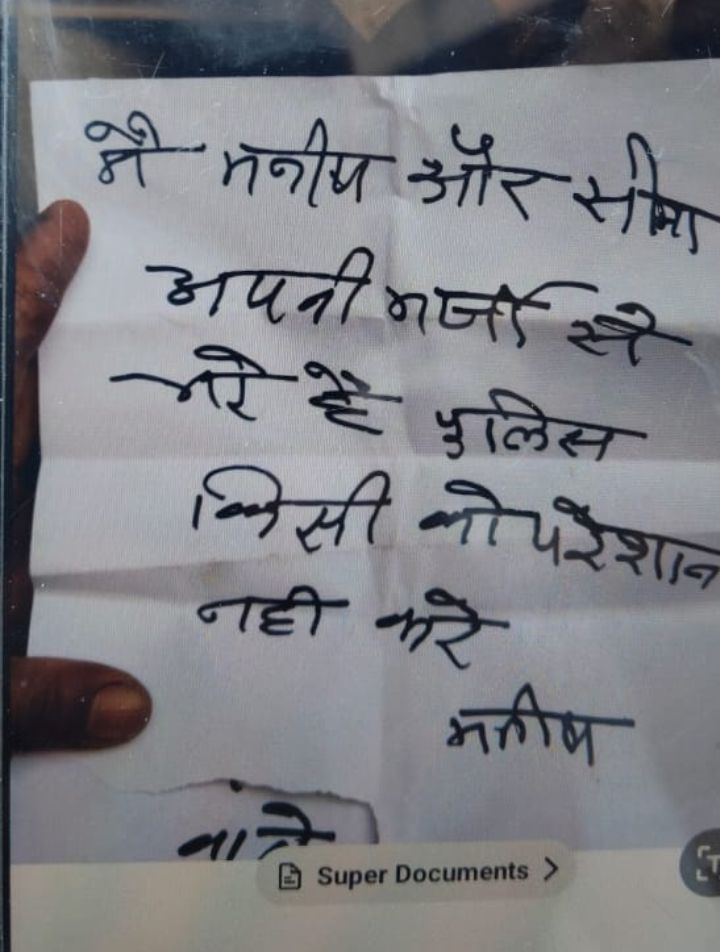 मै मनीष और सीमा
अपनी मर्जी से
मरे है पुलिस
किसी को परेशान
नही करे
मनीष
Super Documents >